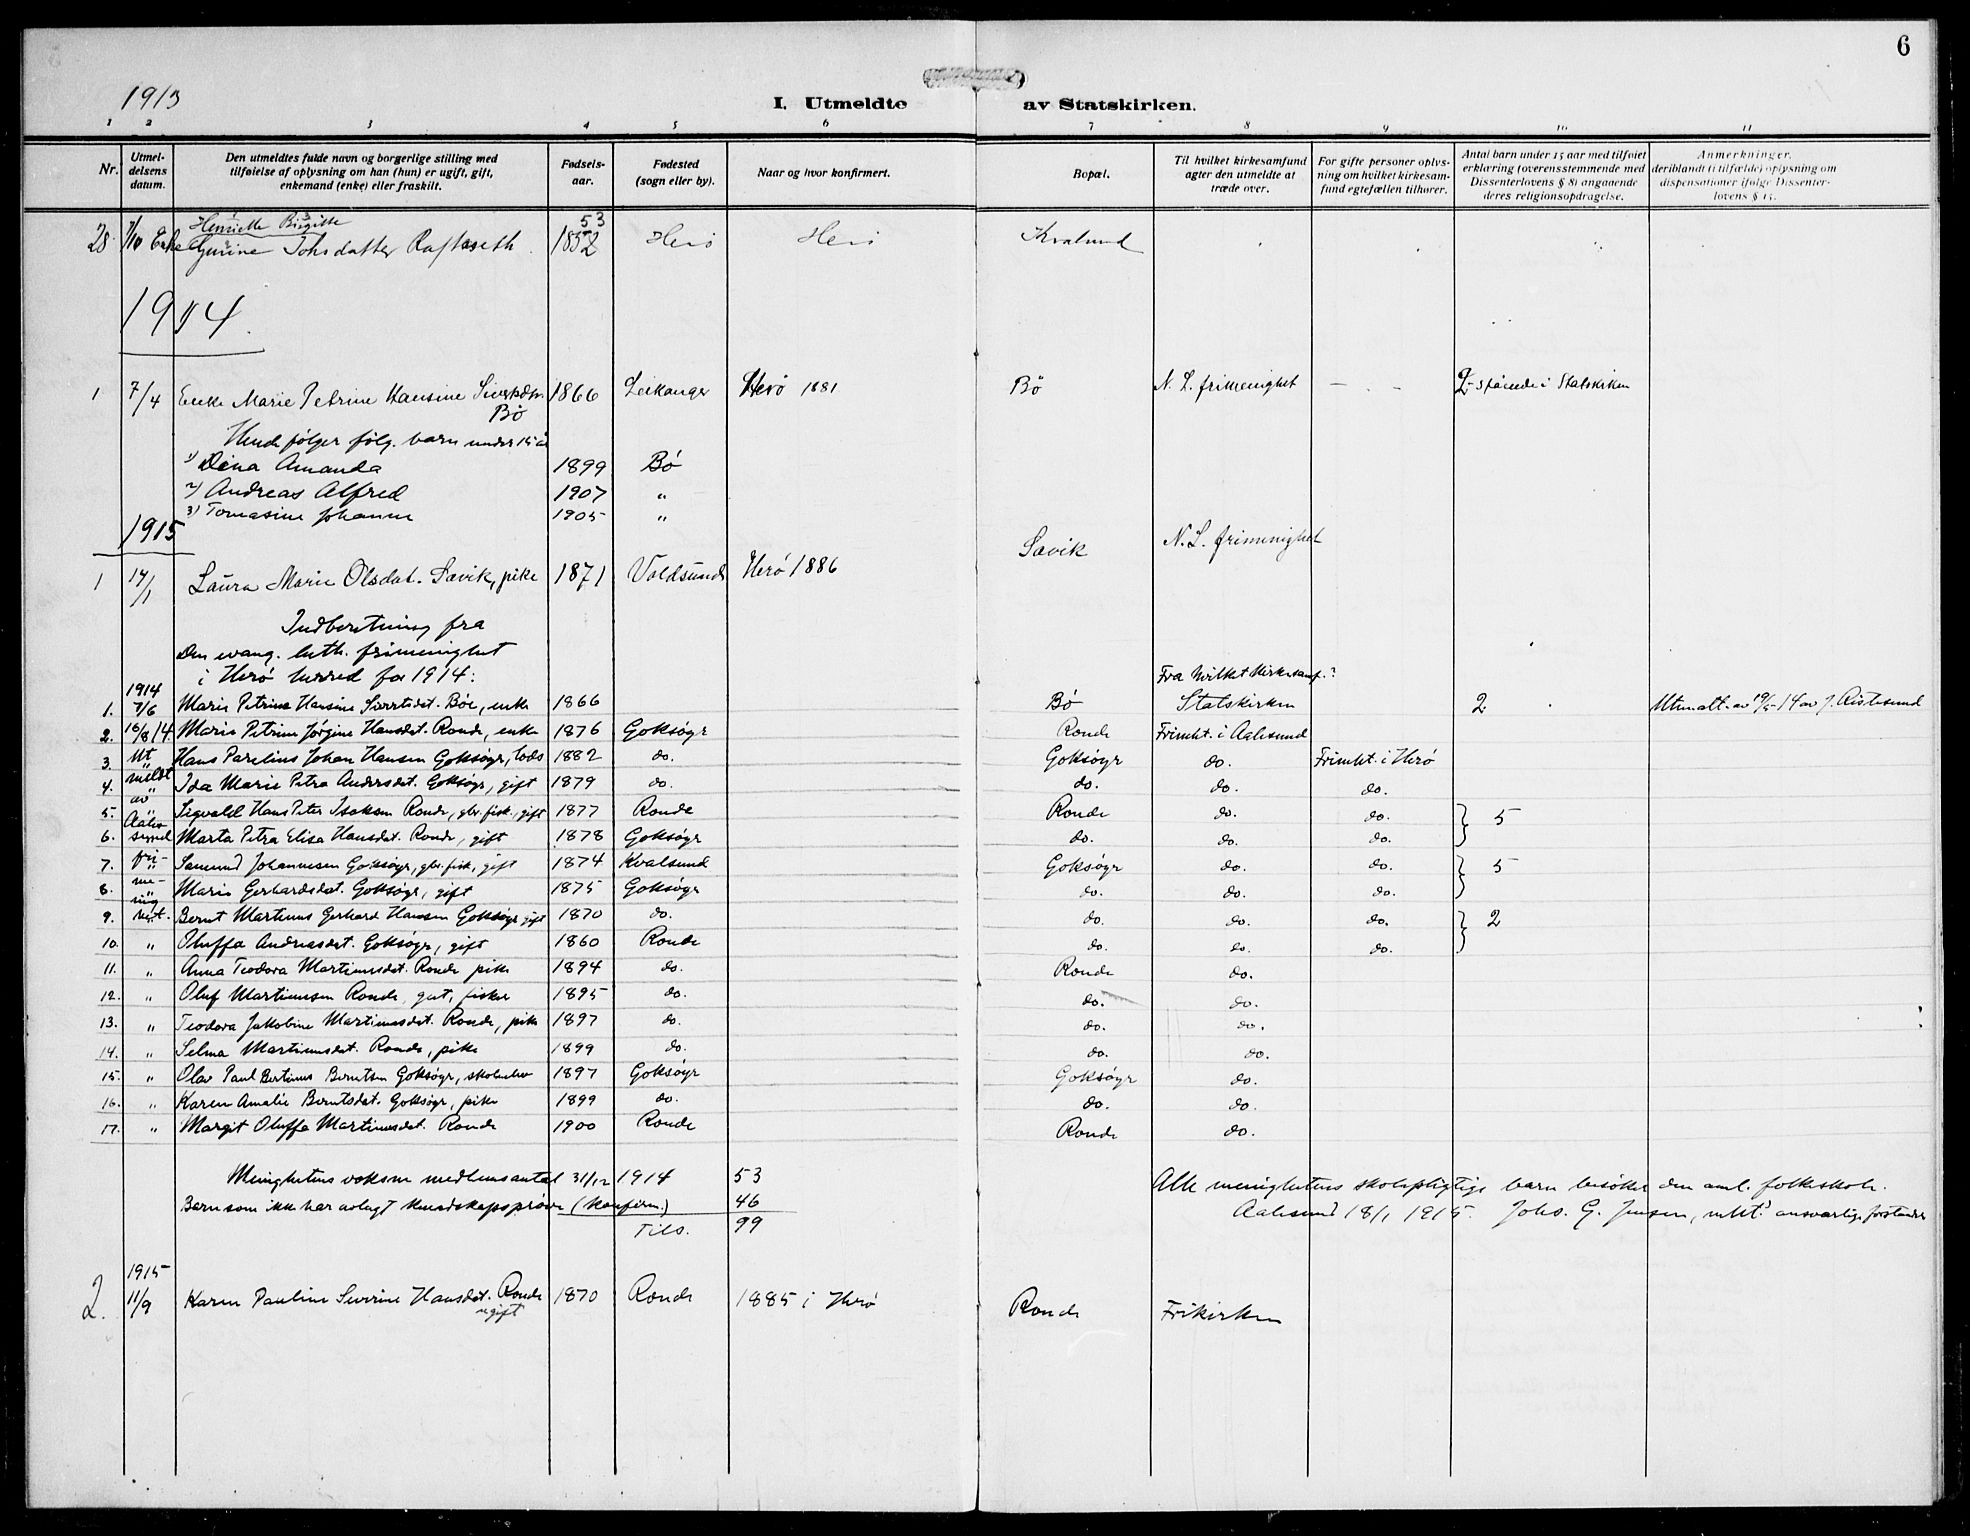 6
1913
I. Utmeldte av Statskirken.
1 2 3 4 5 6 7 8 9 10 11
Nr. | Utmeldelsens datum. | Den utmeldtes fulde navn og borgerlige stilling med tilføielse af oplysning om han (hun) er ugift, gift, enkemand (enke) eller fraskilt. | Fødselsaar. | Fødested (sogn eller by). | Naar og hvor konfirmert. | Bopæl. | Til hvilket kirkesamfund agter den utmeldte at træde over. | For gifte personer oplysning om hvilket kirkesamfund egtefællen tilhører. | Antal barn under 15 aar med tilføiet erklæring (overensstemmende med Dissenterlovens § 8) angaaende deres religionsopdragelse. | Anmerkninger, deriblandt (i tilfælde) oplysning om dispensationer ifølge Dissenterlovens § 15.
Henriette Birgitte 53
28. 7/10 Enke Gurine Johsdatter Rafteseth. 1852 Herö Herö Kvalsund
1914.
1 7/4 Enke Marie Petrine Hansine Sivertsdtr. 1866 Leikanger Herö 1881 Bö N. L. frimenighet — . - 2 - stående i Statskirken
Bø
Hende følger følg. barn under 15 år
1) Dina Amanda 1899 Bö
2) Andreas Alfred 1907 "
3) Tomasine Johanne 1905 "
1915
1 14/1 Laura Marie Olsdat. Sævik, pike 1871 Voldsund Herö 1886 Sævik N. L. frimenighet
Indberetning fra
Den evang. luth. frimenighet
i Herö herred for 1914:
1914 Fra hvilket Kirkesamf.?
1. 7/6 Marie Petrine Hansine Sivertsdat. Böe, enke 1866 Bö Statskirken 2 Utmeldt av J. Ristesund
2. 16/8 14. Marie Petrine Jørgine Hansdat. Ronde, enke 1876 Goksöyr Ronde Frimkt. i Aalesund
3. Ut Hans Parelius Johan Hansen Goksöyr, lods 1882 do. Goksöyr do. Frimkt. i Herö
4. meldt Ida Marie Petra Andersdat. Goksöyr, gift 1879 do. do. do. do.
5. av Sigvald Hans Peter Isaksen Ronde, gbr. fisk., gift 1877 Ronde Ronde do. do. } 5
6. Aalesund Marta Petra Elisa Hansdat. Ronde, gift 1878 Goksöyr do. do. do.
7. fri- Samund Johannesen Goksöyr, gbr. fisk, gift 1874 Kvalsund Goksöyr do. do. } 5
8. me- Marie Gerhardsdat. Goksöyr, gift 1875 Goksöyr do. do. do.
9. nig het. Bernt Martinus Gerhard Hansen Goksöyr gift 1870 do. do. do. do. } 2
10. " Oluffa Andreasdat. Goksöyr, gift 1860 Ronde do. do. do.
11. " Anna Teodora Martinusdat. Ronde pike 1894 do. Ronde do.
12. " Oluf Martinusen Ronde, gut, fisker 1895 do. do. do.
13. " Teodora Jakobine Martinusdat. Ronde, pike 1897 do. do. do.
14. " Selma Martinusdat. Ronde, pike 1899 do. do. do.
15. " Olav Paul Bertinus Berntsen Goksöyr, skoleelev 1897 Goksöyr Goksöyr do.
16. " Karen Amalie Berntsdat. Goksöyr, pike 1899 do. do. do.
17. " Margit Oluffa Martinusdat. Ronde 1900 Ronde Ronde do.
Menighetens voksne medlemsantal 31/12 1914 53 Alle menighetens skolepligtige barn besöker den aml. folkeskole.
Barn som ikke har avlagt kundskapsprøve (Konfirm.) 46 Aalesund 18/1 1915. Johs. G. Jensen, ansvarlige forstander
Tils. 99
1915
2. 11/9 Karen Pauline Severine Hansdat. Ronde 1870 Ronde 1885 i Herö Ronde Frikirken
ugift